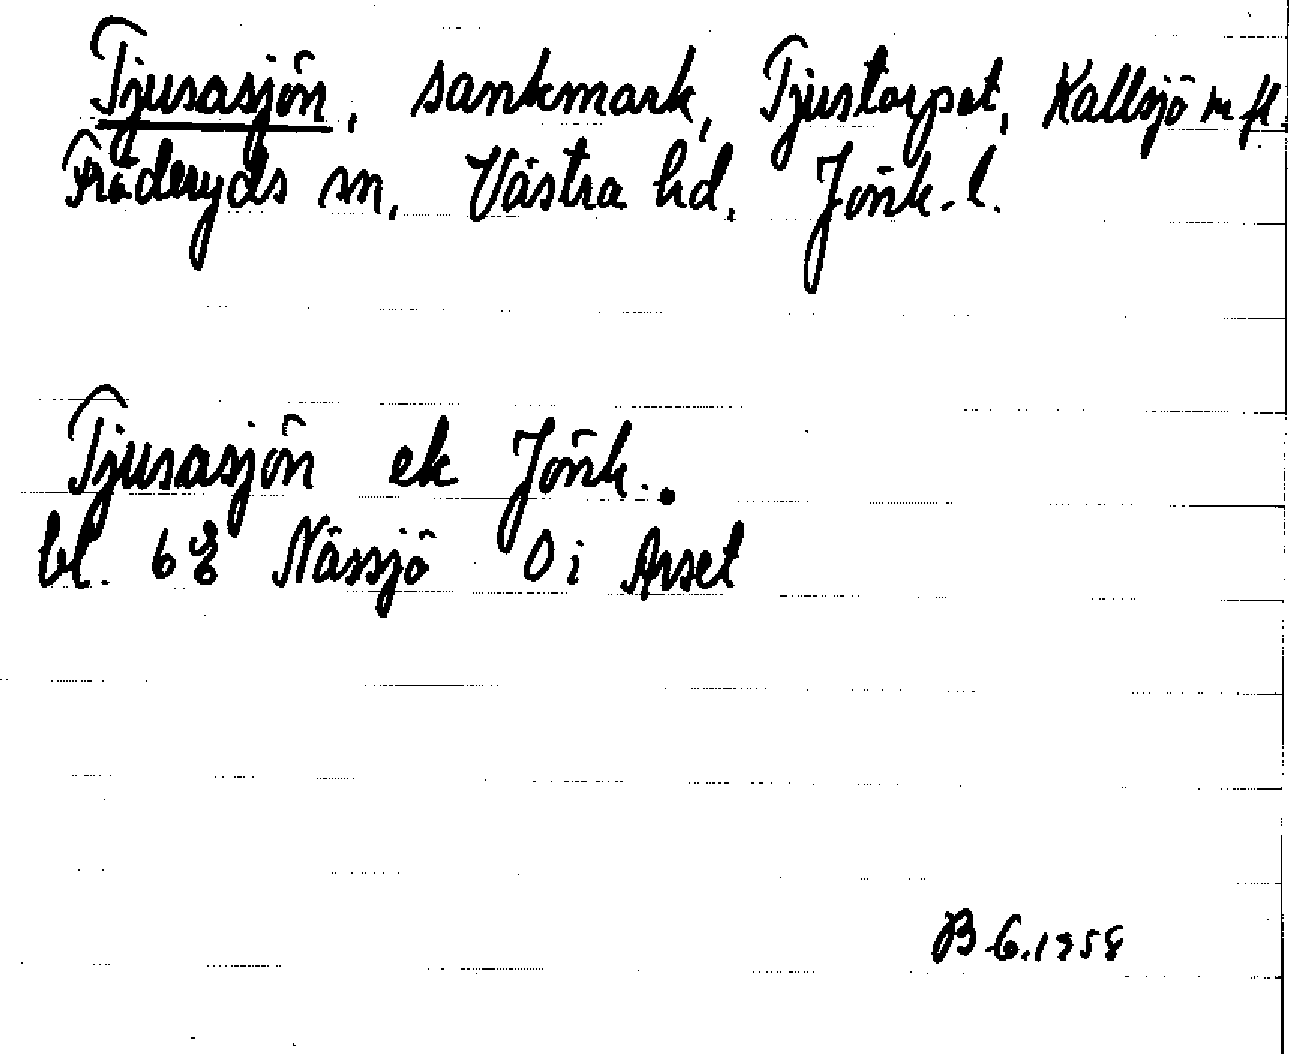 Tjusasjön, sankmark, Tjustorpet, Kallsjö m fl.
Fröderyds sn, Västra hd, Jönk. l.
Tjusasjön ek Jönk..
bl. 68 Nässjö O i Arset
B G. 1958